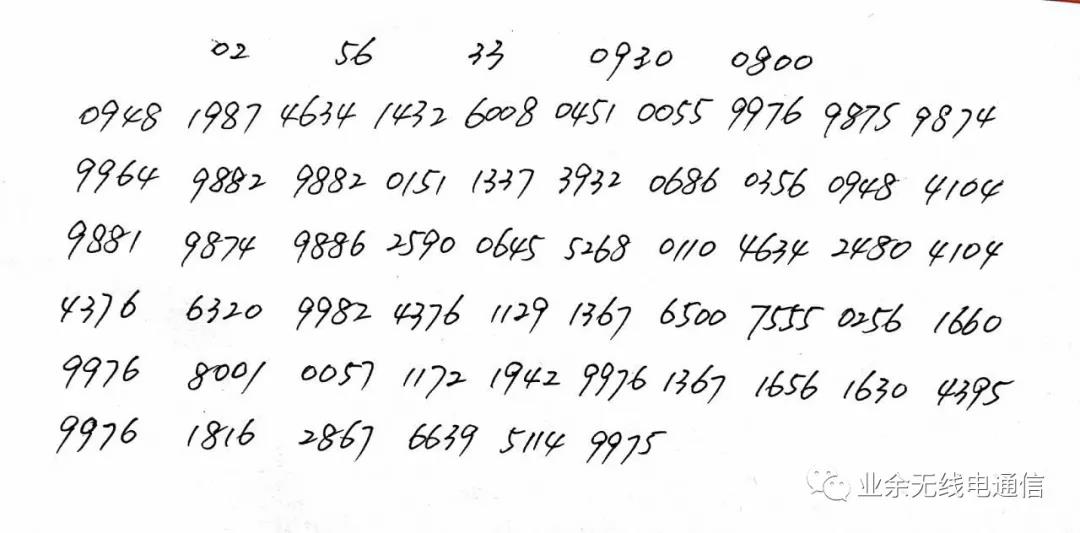 02 56 33 0930 0800
0948 1987 4634 1432 6008 0451 0055 9976 9875 9874
9964 9882 9882 0151 1337 3932 0686 0356 0948 4104
9881 9874 9886 2590 0645 5268 0110 4634 2480 4104
4376 6320 9982 4376 1129 1367 6500 7555 0256 1660
9976 8001 0057 1172 1942 9976 1367 1656 1630 4395
9976 1816 2867 6639 5114 9975
业余无线电通信